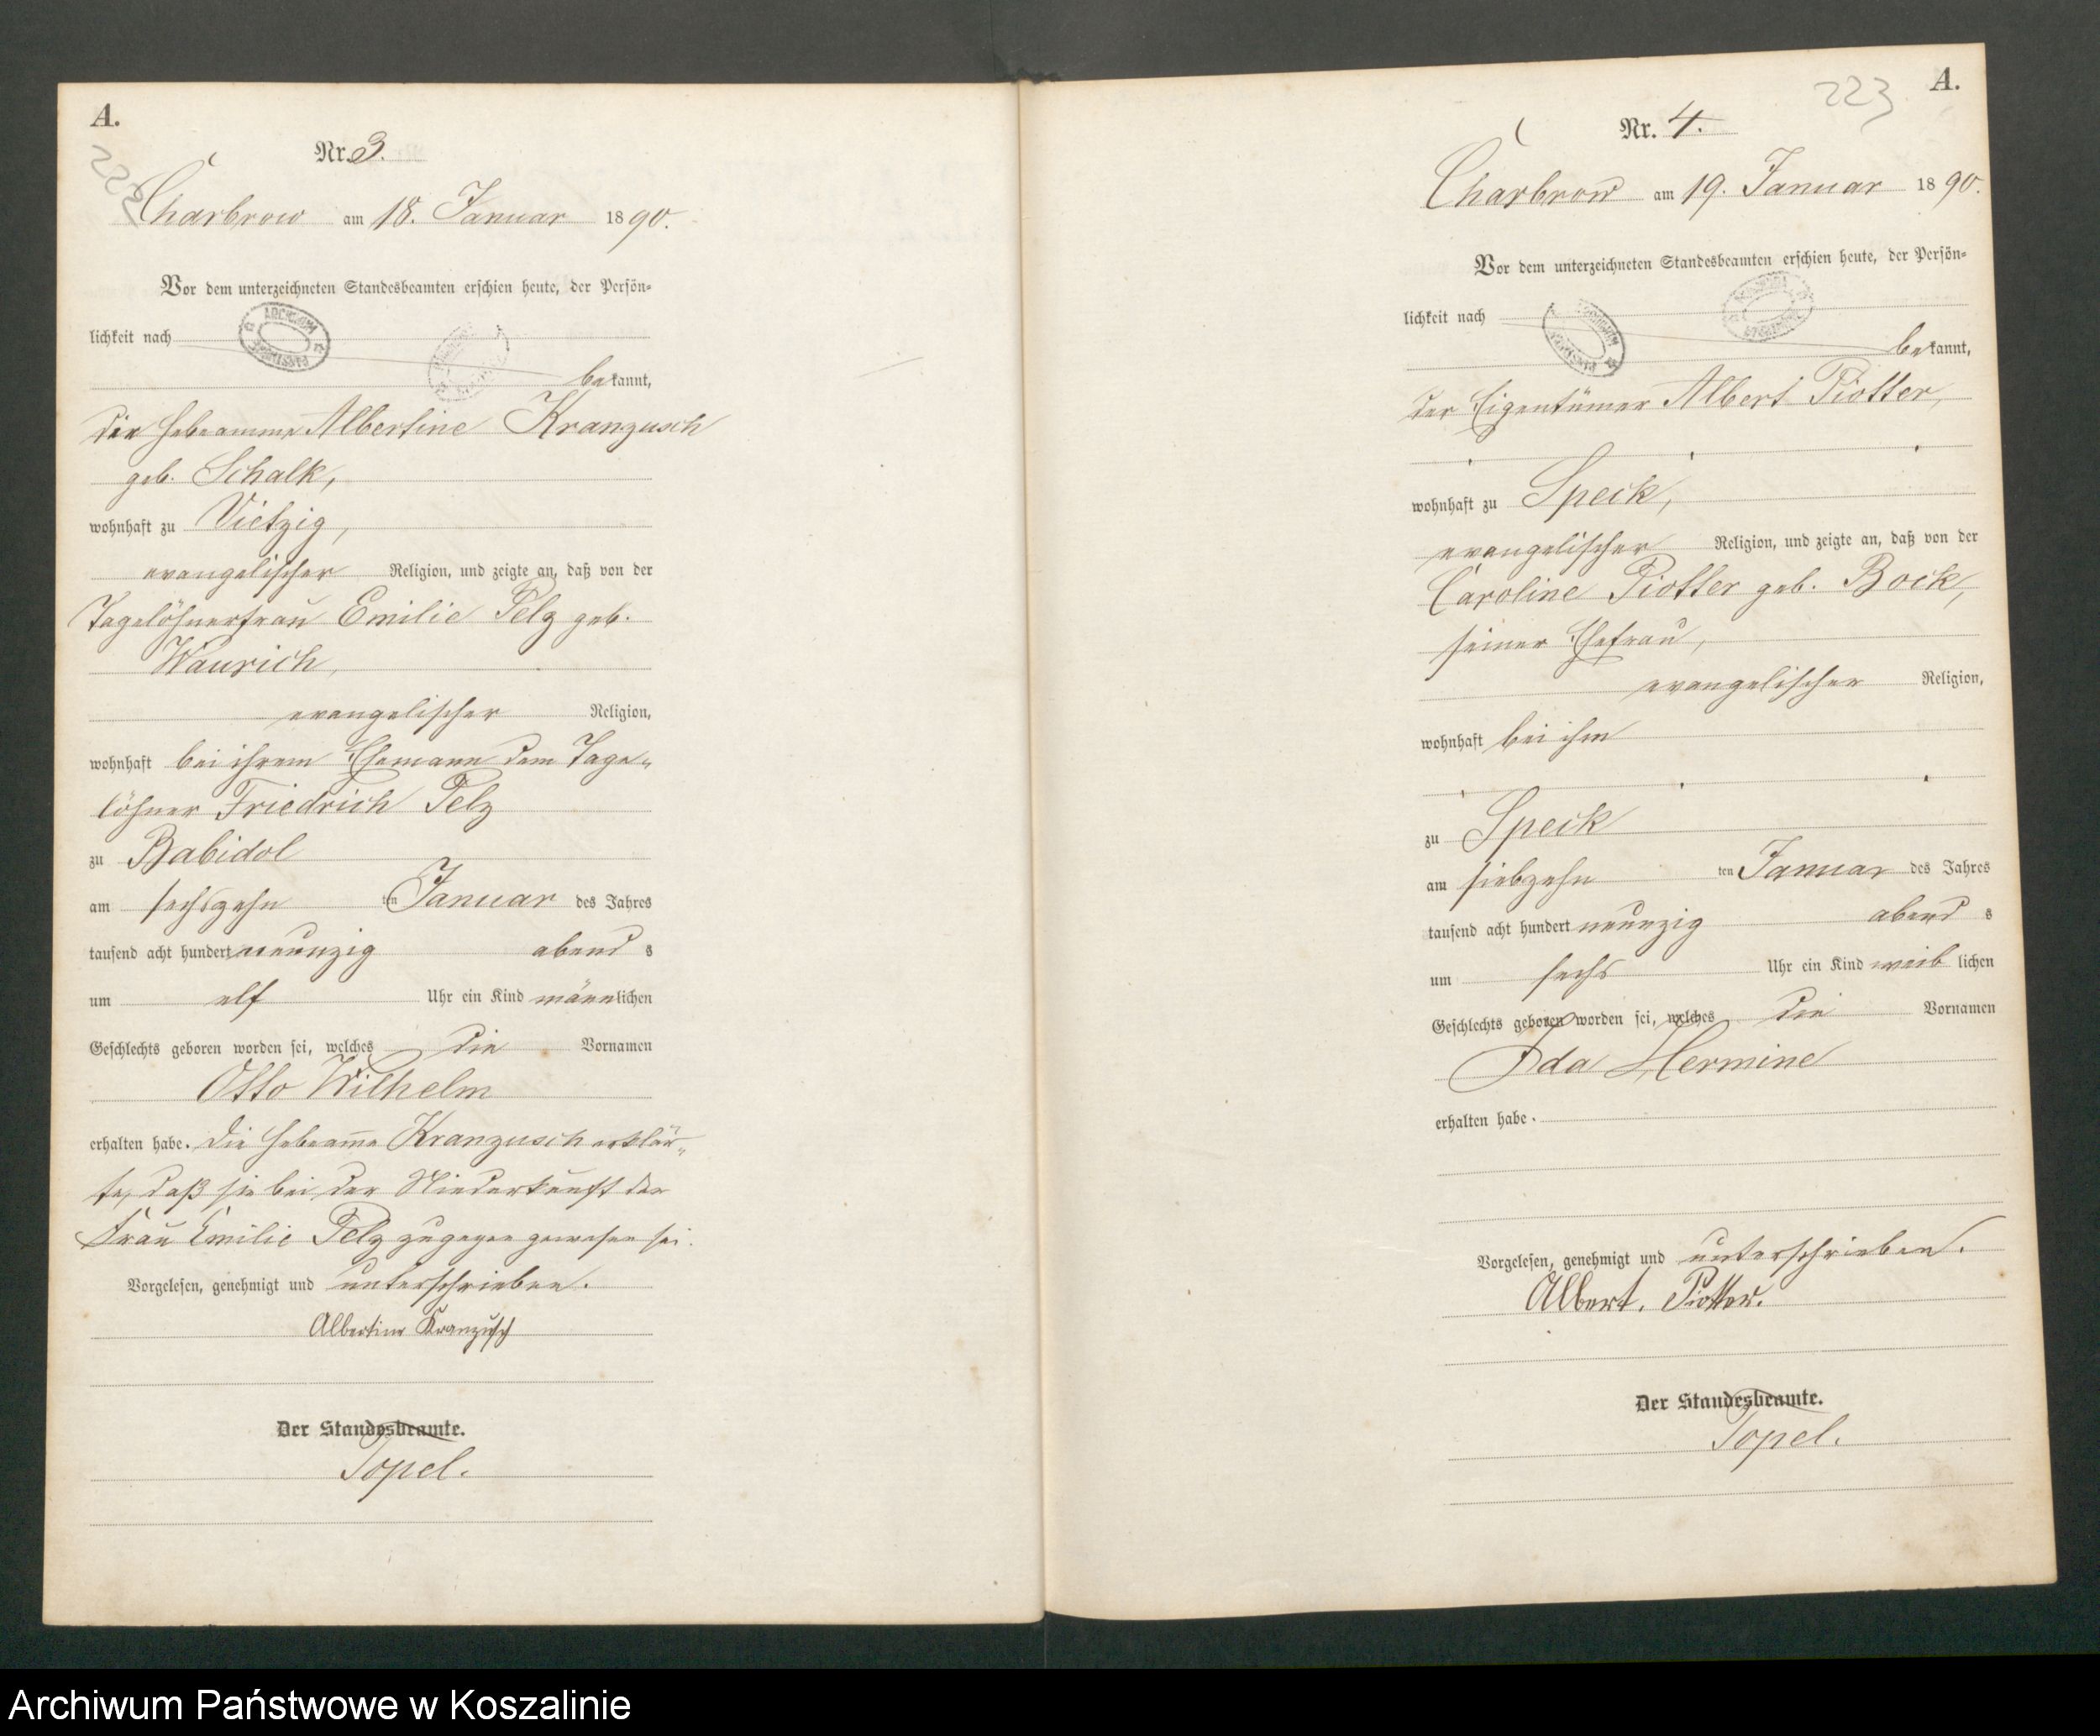 A.
Nr. 3.
Charbrow am 18. Januar 1890.
Vor dem unterzeichneten Standesbeamten erschien heute, der Persön-
lichkeit nach
bekannt,
die Hebeamme Albertine Kranzusch
geb. Schalk,
wohnhaft zu Vietzig,
evangelischer Religion, und zeigte an, daß von der
Tagelöhnerfrau Emilie Pelz geb.
Waurich,
evangelischer Religion,
wohnhaft bei ihrem Ehemann dem Tage-
löhner Friedrich Pelz
zu Babidol
am sechszehn ten Januar des Jahres
tausend acht hundert neunzig abend s
um elf Uhr ein Kind männlichen
Geschlechts geboren worden sei, welches die Vornamen
Otto Wilhelm
erhalten habe. Die Hebeamme Kranzusch erklär-
te, daß sie bei der Niederkunft der
Frau Emilie Pelz zugegen gewesen sei.
Vorgelesen, genehmigt und unterschrieben.
Albertine Kranzusch
Der Standesbeamte.
Topel.
223
A.
Nr. 4.
Charbrow am 19. Januar 1890.
Vor dem unterzeichneten Standesbeamten erschien heute, der Persön-
lichkeit nach
bekannt,
der Eigentümer Albert Piotter,
wohnhaft zu Speck,
evangelischer Religion, und zeigte an, daß von der
Caroline Piotter geb. Bock,
seiner Ehefrau,
evangelischer Religion,
wohnhaft bei ihm
zu Speck
am siebzehn ten Januar des Jahres
tausend acht hundert neunzig abend s
um sechs Uhr ein Kind weiblichen
Geschlechts geboren worden sei, welches die Vornamen
Ida Hermine
erhalten habe.
Vorgelesen, genehmigt und unterschrieben.
Albert. Piotter.
Der Standesbeamte.
Topel.
Archiwum Państwowe w Koszalinie